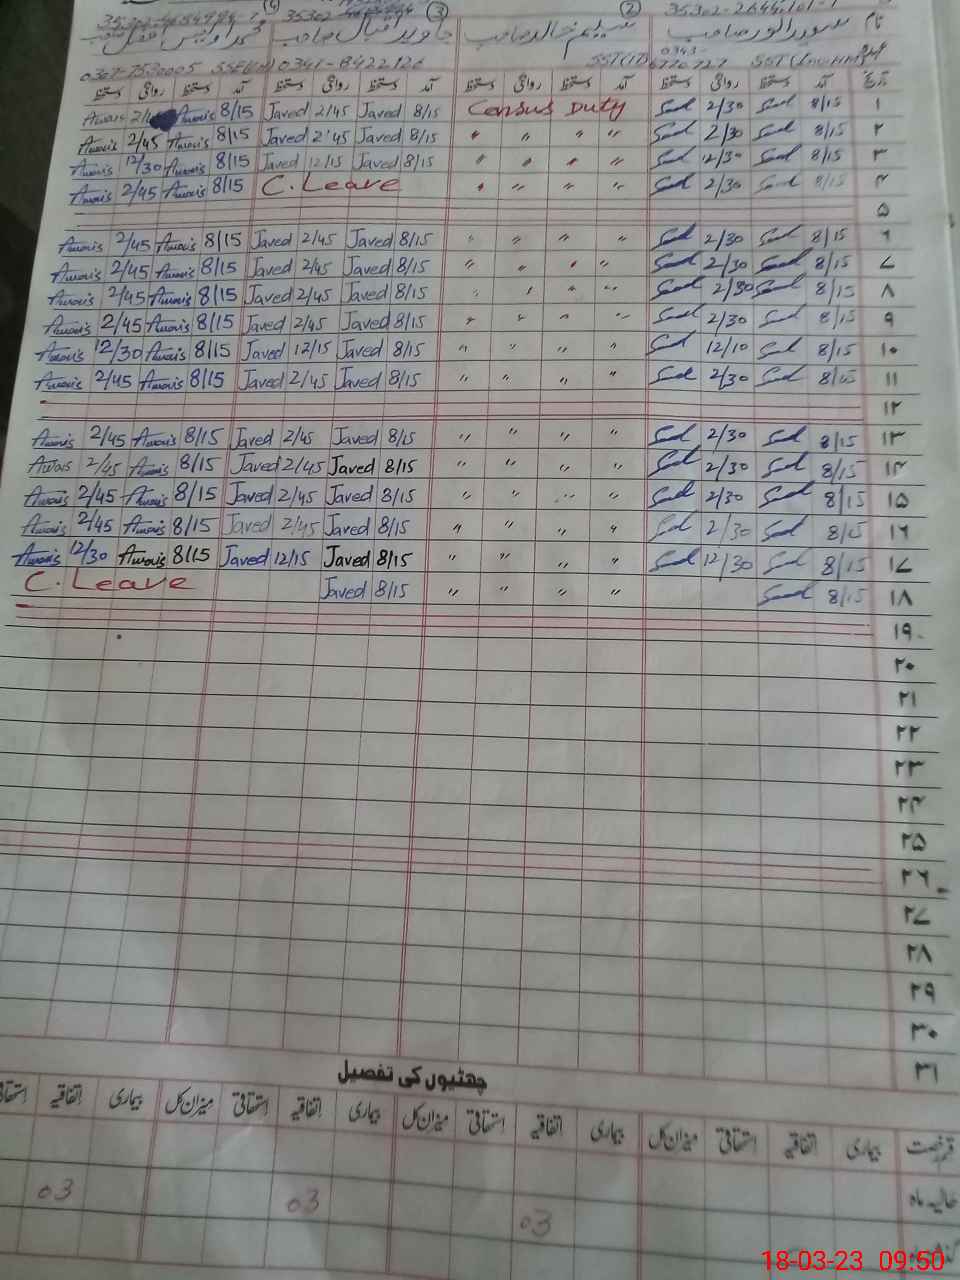 ④ ③ 35302- ② 35302-2644101-1
نام سعید انور صاحب سلیم خالد صاحب جاوید اقبال صاحب محمد اویس فضل صاحب
SST(IT) 0343-6770727 0341-8422126 0307-7530005
تاریخ آمد دستخط روانگی دستخط آمد دستخط روانگی دستخط آمد دستخط روانگی دستخط آمد دستخط روانگی دستخط
Awais 8/15 Javed 2/45 Javed 8/15 Census Duty 2/30 8/15 ۱
Awais 2/45 Awais 8/15 Javed 2/45 Javed 8/15 " " " " 2/30 8/15 ۲
Awais 12/30 Awais 8/15 Javed 12/15 Javed 8/15 " " " " 12/30 8/15 ۳
Awais 2/45 Awais 8/15 C. Leave " " " " 2/30 8/15 ۴
۵
Awais 2/45 Awais 8/15 Javed 2/45 Javed 8/15 " " " " 2/30 8/15 ۶
Awais 2/45 Awais 8/15 Javed 2/45 Javed 8/15 " " " " 2/30 8/15 ۷
Awais 2/45 Awais 8/15 Javed 2/45 Javed 8/15 " " " " 2/30 8/15 ۸
Awais 2/45 Awais 8/15 Javed 2/45 Javed 8/15 " " " " 2/30 8/15 ۹
Awais 12/30 Awais 8/15 Javed 12/15 Javed 8/15 " " " " 12/10 8/15 ۱۰
Awais 2/45 Awais 8/15 Javed 2/45 Javed 8/15 " " " " 2/30 8/15 ۱۱
۱۲
Awais 2/45 Awais 8/15 Javed 2/45 Javed 8/15 " " " " 2/30 8/15 ۱۳
Awais 2/45 Awais 8/15 Javed 2/45 Javed 8/15 " " " " 2/30 8/15 ۱۴
Awais 2/45 Awais 8/15 Javed 2/45 Javed 8/15 " " " " 2/30 8/15 ۱۵
Awais 2/45 Awais 8/15 Javed 2/45 Javed 8/15 " " " " 2/30 8/15 ۱۶
Awais 12/30 Awais 8/15 Javed 12/15 Javed 8/15 " " " " 12/30 8/15 ۱۷
C. Leave Javed 8/15 " " " " 8/15 ۱۸
۱۹
۲۰
۲۱
۲۲
۲۳
۲۴
۲۵
۲۶
۲۷
۲۸
۲۹
۳۰
۳۱
چھٹیوں کی تفصیل
قسم رخصت بیماری اتفاقیہ استحقاقی میزان کل بیماری اتفاقیہ استحقاقی میزان کل بیماری اتفاقیہ استحقاقی میزان کل بیماری اتفاقیہ
حالیہ ماہ 03 03
03
18-03-23 09:50